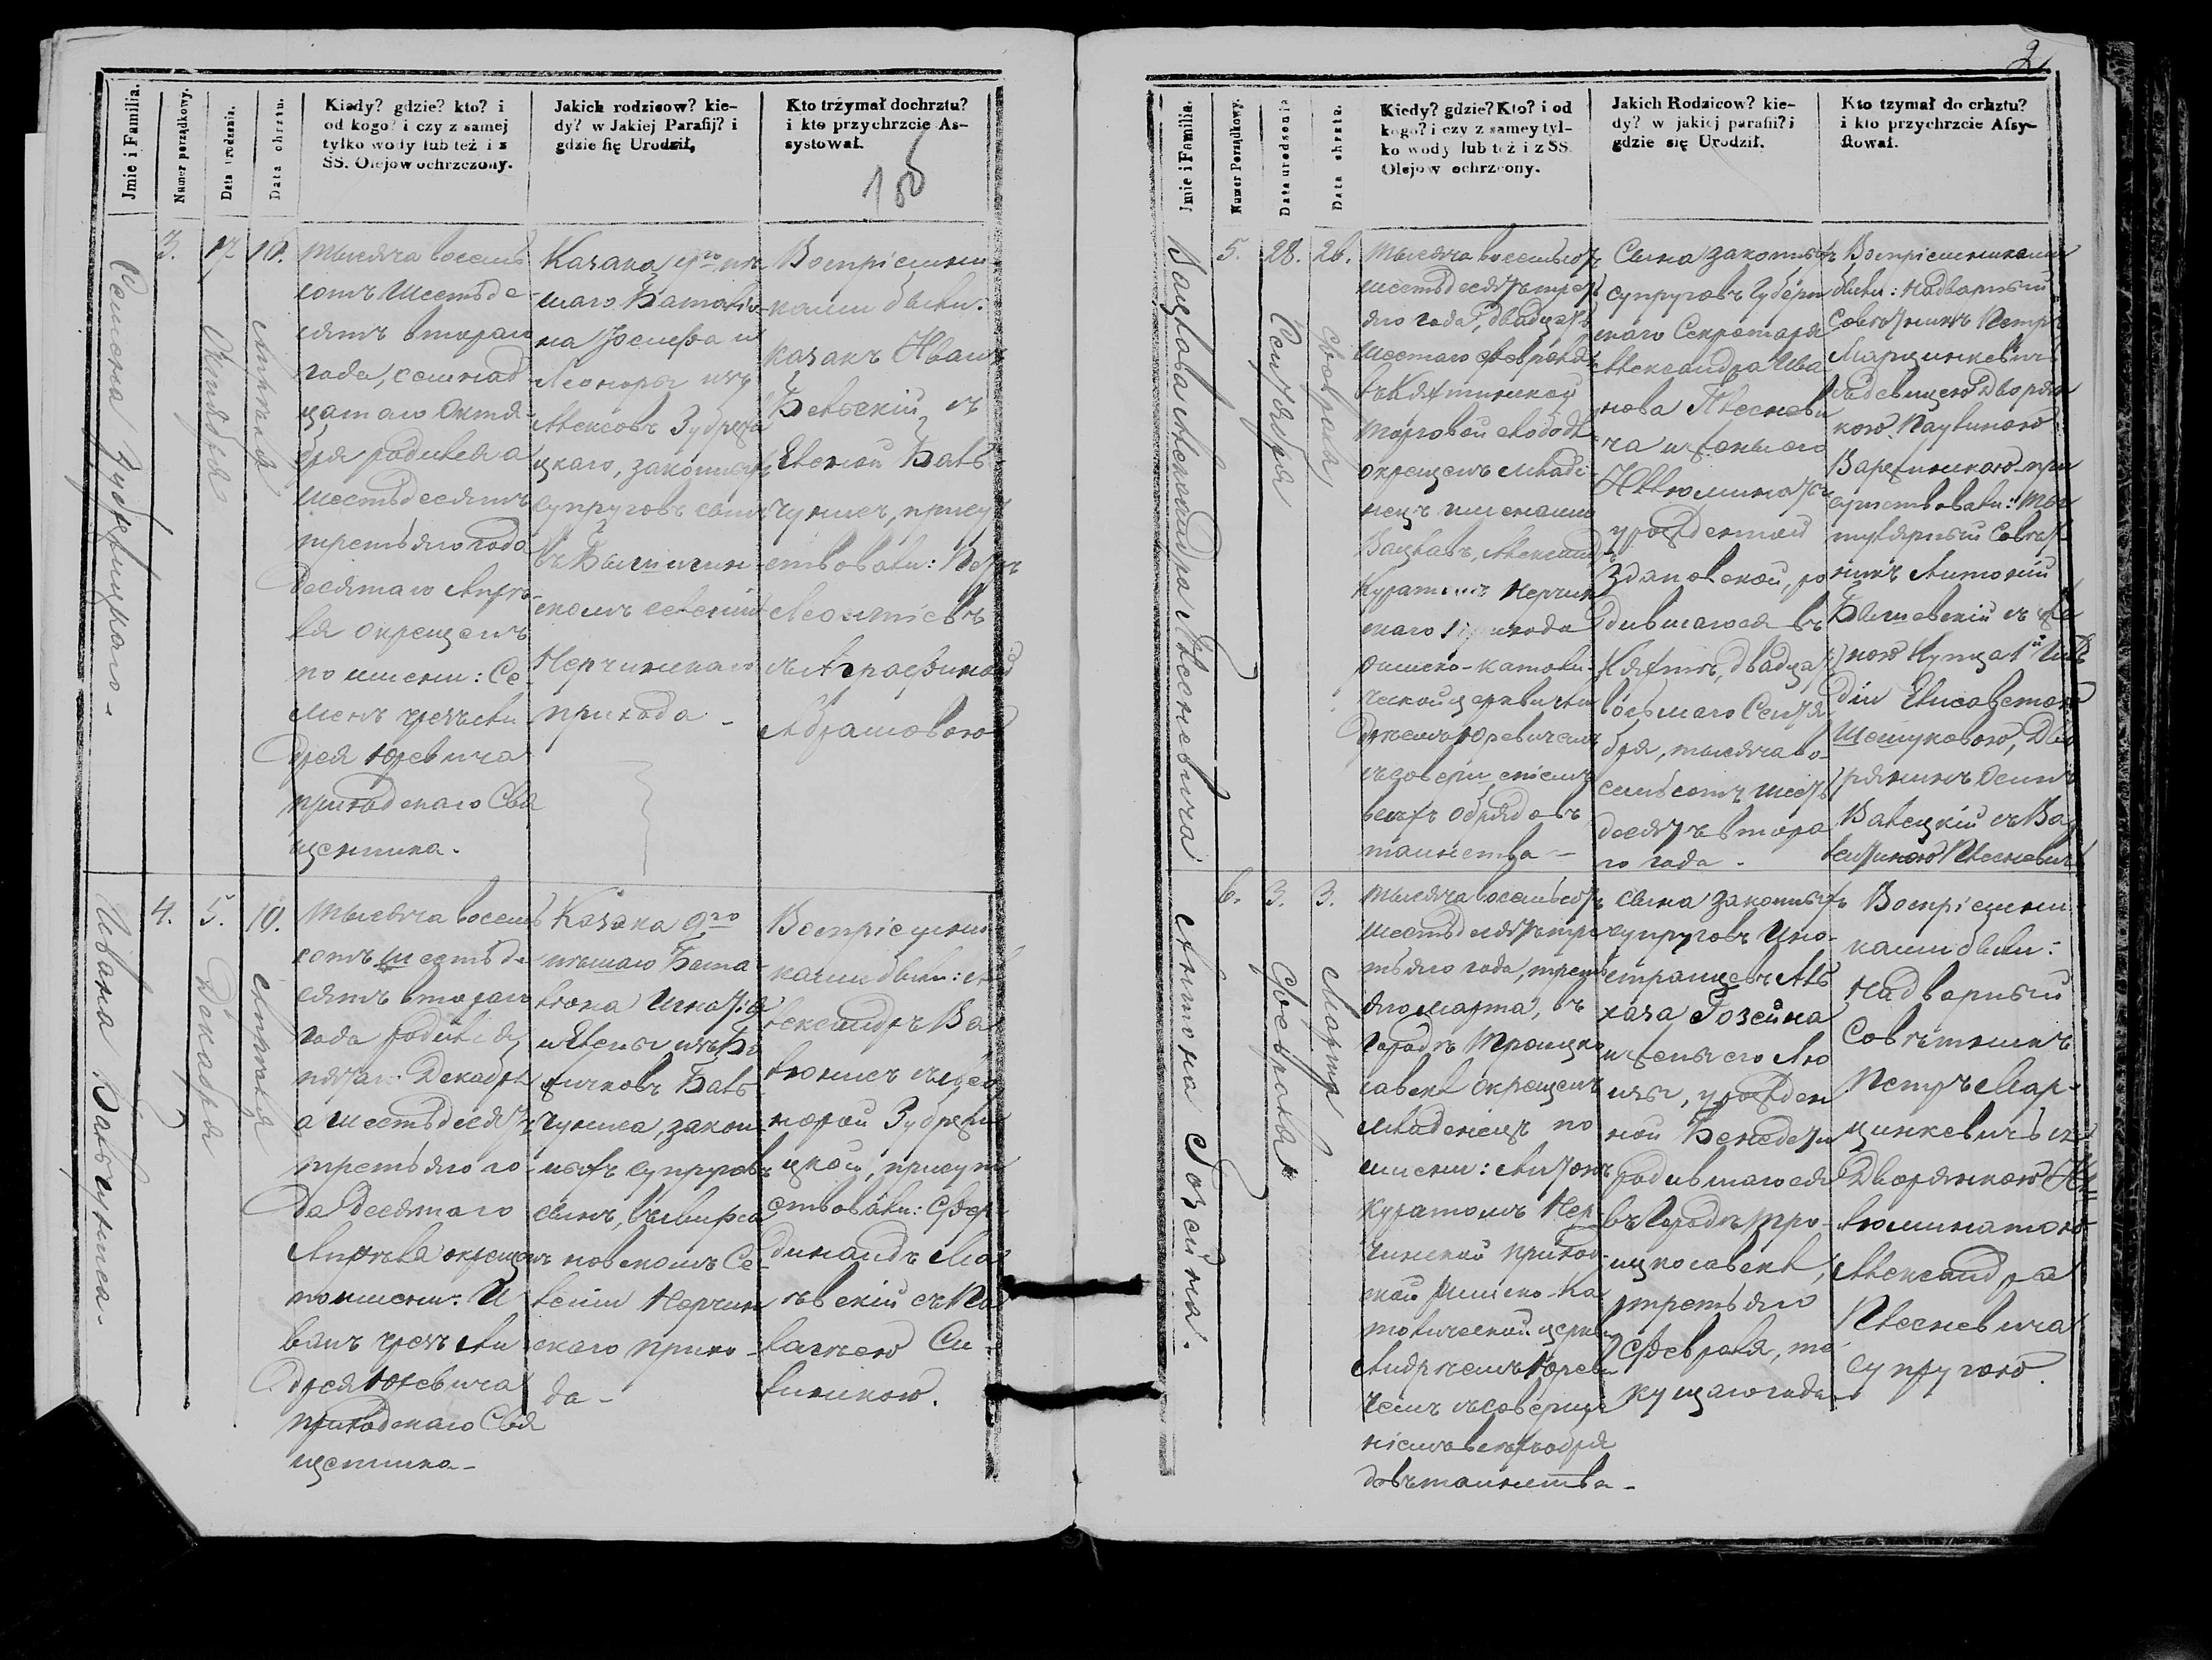 2
Jmie i Familia.
Numer porządkowy.
Data urodzenia.
Data chrztu.
Kiedy? gdzie? kto? i
od kogo? i czy z samej
tylko wody lub też i z
SS. Olejow ochrzczony.
Jakich rodzicow? kie-
dy? w Jakiej Parafij? i
gdzie się Urodził,
Kto trzymał dochrztu?
i kto przychrzcie As-
systował.
100
Семена Зубржицкаго.
3.
17
Октября
10.
Апреля
тысяча восемь
сотъ шестьде
сятъ втораго
года, семнад
цатаго Октя-
бря родился а
шестьдесятъ
третьяго года
десятаго Апрѣ-
ля окрещенъ
по имени: Се
менъ чрезъ Ан
дрея Юревича
приходскаго Свя
щенника.
Казака 9го пѣ
шаго Баталіо-
на Іосифа и
Леоноры изъ
Алексовъ Зубржи
цкаго, законныхъ
супруговъ сынъ
въ
скомъ селеніи
Нерчинскаго
прихода
Воспріемни-
ками были:
казакъ Иванъ
Бѣльскій съ
Еленой Баль-
чунисъ, присут
ствовали: Петръ
Леонтіевъ
съ Аграфиной
Абрамовою
Ивана Бальчуниса.
4.
5.
Декабря
10.
Апреля
Тысяча восемь
сотъ шестьде
сятъ втораго
года родился
пятаго Декабря
а шестьдесятъ
третьяго го
да десятаго
Апрѣля окрещенъ
по имени: И
ванъ чрезъ Ан
дрея Юревича
приходскаго Свя
щенника
Казака 9го
пѣшаго Бата
ліона Игнатія
и Елены изъ
Баль
чуниса, закон
ныхъ супруговъ
сынъ,
новскомъ Се
леніи Нерчин
скаго прихо
да
Воспріемни
ками были: Ал
ександръ Ва
люнисъ съ Лео
норой Зубржи
цкой, присут
ствовали: Фер
динандъ Ма
евскій съ Пе
лагѣею Си
линскою.
Jmie i Familia.
Numer Porządkowy.
Data urodzenia
Data chrztu.
Kiedy? gdzie? Kto? i od
kogo? i czy z samey tyl-
ko wody lub też i z SS.
Olejow ochrzcony.
Jakich Rodzicow? kie-
dy? w jakiej parafii? i
gdzie się Urodził.
Kto tzymał do crhztu?
i kto przychrzcie Assy-
stował.
Вацлава Александра Плесневича
5.
28.
Сентября
26.
Февраля
Тысяча восемьсотъ
шестьдесятъ треть
яго года, двадцать
шестаго февраля
въ Кяхтинской
торговой слободѣ
окрещенъ младе
нецъ именами
Вацлавъ, Александръ
Куратомъ Нерчин
скаго прихода
римско-католи-
ческой церкви Ан
дреемъ Юревичемъ
съ совершеніемъ
всѣхъ обрядовъ
таинства
Сына законныхъ
супруговъ Губерн
скаго Секретаря
Александра Ива
нова Плесневи
ча и жены его
урожденной
Здановской, ро
дившагося въ
Кяхтѣ, двадцать
восьмаго Сентя
бря, тысяча во-
семьсотъ шесть
десятъ втора
го года
Воспріемниками
были: Надворный
Совѣтникъ Петръ
Марцинкевичъ
съ дѣвицею Дворян
кою Паулиною
при
сутствовали: Ти
тулярный Совѣт
никъ Антоній
съ же
ною Купца 1й Гиль
діи Елисаветою
Шешуковою, Дво
рянинъ Осипъ
Валецкій съ Ва
лентиною Плесневичъ
Антона Гозейна.
6.
3.
Февраля
3.
Марта
Тысяча восемьсотъ
шестьдесятъ тре
тьяго года, треть
яго марта, въ
городѣ Троицко
савскѣ окрещенъ
младенецъ по
имени: Антонъ
Куратомъ Нер
чинской приход
ской Римско-Ка
толической церкви
Андреемъ Юреви
чемъ съ соверше
ніемъ всѣхъ обря
довъ таинства
сына законныхъ
супруговъ Ино
странцевъ
Гозейна
и жены его
урожден
ной Бенедети
родившагося
въ городѣ Тро
ицкосавскѣ,
третьяго
Февраля, те
кущаго года
Воспріемни
ками были:
Надворный
Совѣтникъ
Петръ Мар-
цинкевичъ съ
Дворянкою
Александра
Плесневича
супругою.